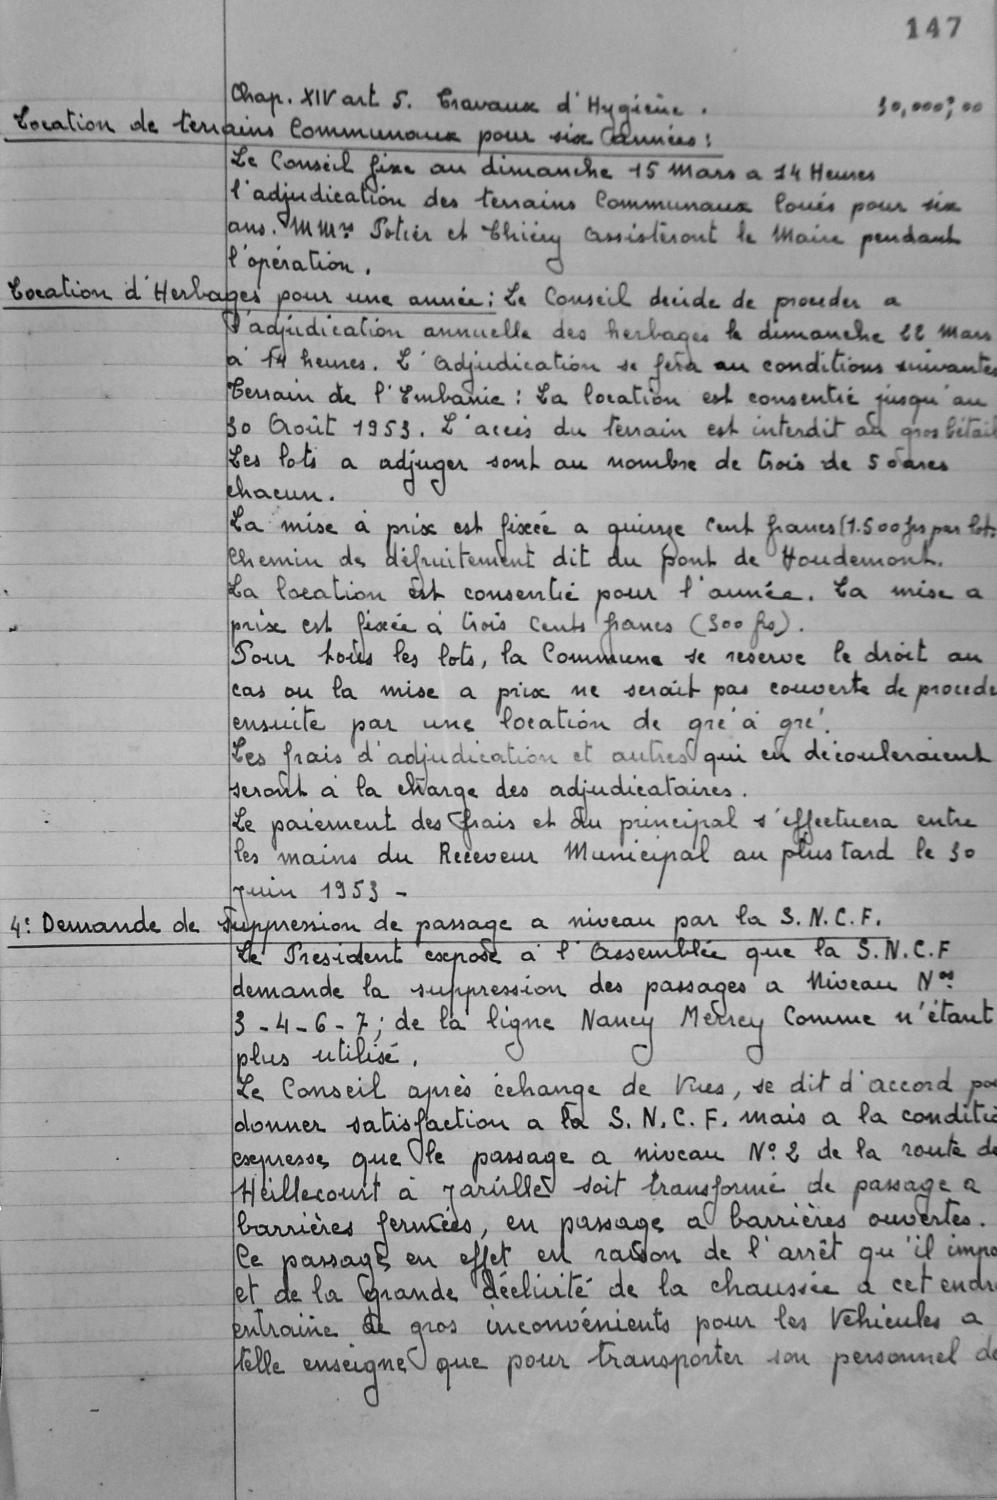 147
Chap. XIV art 5. Travaux d'Hygiène. 30,000,00
Location de terrains Communaux pour six années :
Le Conseil fixe au dimanche 15 Mars a 14 Heures
l'adjudication des terrains Communaux loués pour six
ans. MMrs Potier et Thiéry assisteront le Maire pendant
l'opération.
Location d'Herbages pour une année : Le Conseil decide de proceder a
l'adjudication annuelle des herbages le dimanche 22 Mars
à 14 heures. L'adjudication se fera au conditions suivantes
Terrain de l'Embanie : La location est consentie jusqu'au
30 Août 1953. L'accès du terrain est interdit au gros bétail
Les lots a adjuger sont au nombre de trois de 5 ares
chacun.
La mise à prix est fixée a quinze cent francs (1.500 frs par lot.
Chemin de défruitement dit du pont de Houdemont.
La location est consentie pour l'année. La mise a
prix est fixée à trois cents francs (300 frs).
Pour tous les lots, la Commune se reserve le droit au
cas ou la mise a prix ne serait pas couverte de procede
ensuite par une location de gré à gré.
Les frais d'adjudication et autres qui en découleraient
seront à la charge des adjudicataires.
Le paiement des frais et du principal s'effectuera entre
les mains du Receveur Municipal au plus tard le 30
Juin 1953 -
4: Demande de suppression de passage a niveau par la S.N.C.F.
Le President expose à l'Assemblée que la S.N.C.F
demande la suppression des passages a Niveau Nos
3-4-6-7; de la ligne Nancy Merrey Comme n'étant
plus utilisé.
Le Conseil après échange de Vues, se dit d'accord po
donner satisfaction a la S.N.C.F. mais a la conditio
expresse que le passage a niveau N° 2 de la route de
Heillecourt à Jarville soit transformé de passage a
barrières fermées, en passage a barrières ouvertes.
Ce passage en effet en raison de l'arrêt qu'il impo
et de la grande déclivité de la chaussée a cet endro
entraine de gros inconvénients pour les Véhicules a
telle enseigne que pour transporter son personnel de